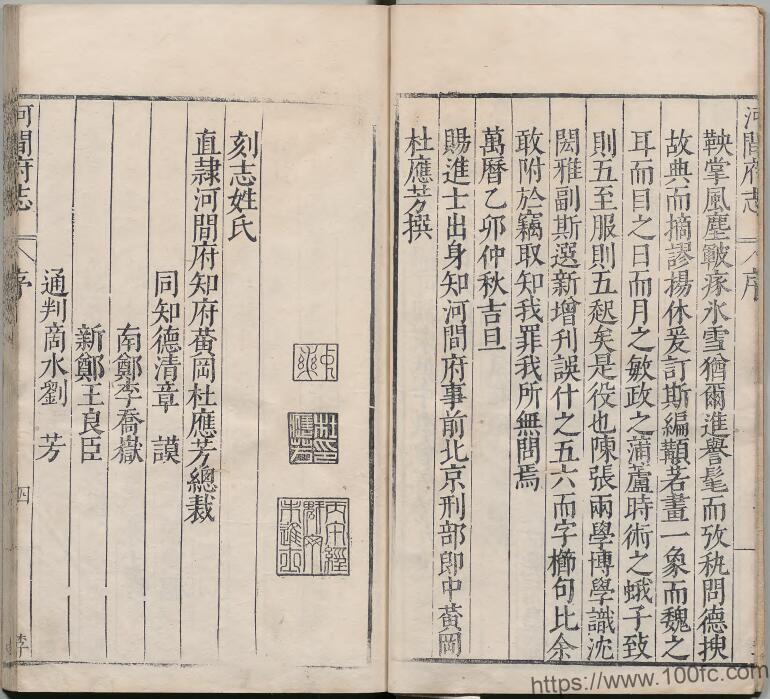 河間府志
序
鞅掌風塵皸瘃氷雪猶爾進譽髦而攷秇問德㨗
故典而摘謬揚休爰訂斯編顜若畫一象而魏之
耳而目之日而月之敏政之蒲蘆時術之蛾子致
則五至服則五起矣是役也陳張兩學博學識沈
閎雅副斯選新增刊誤什之五六而字櫛句比余
敢附於竊取知我罪我所無問焉
萬曆乙卯仲秋吉旦
賜進士出身知河間府事前北京刑部郎中黃岡
杜應芳撰
刻志姓氏
直隷河間府知府黃岡杜應芳總裁
同知德清章 謨
南鄭李喬嶽
新鄭王良臣
通判商水劉 芳
河間府志
序
四
https://www.100fc.com